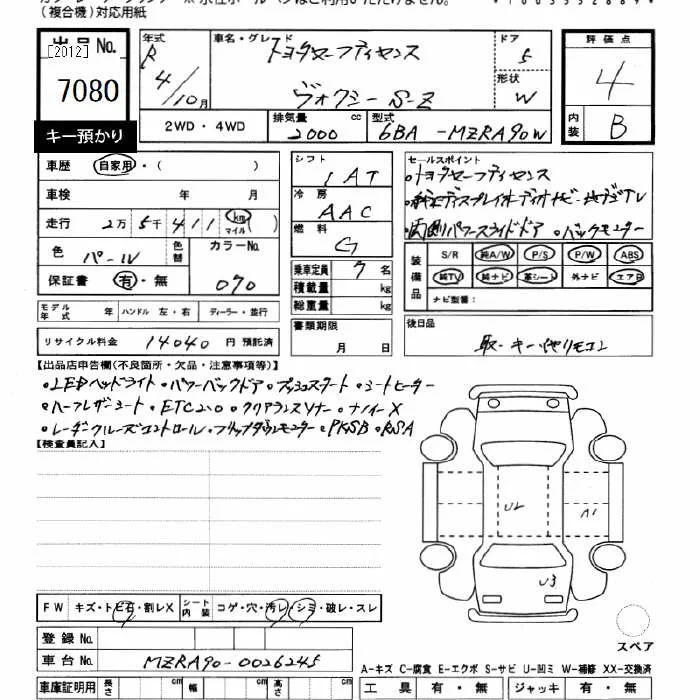 (複合機)対応用紙
出品No. [2012] 7080
キー預かり
年式 R 4/10月
車名・グレード トヨタセーフティセンス
ヴォクシー S-Z
ドア 5
形状 W
評価点 4
内装 B
2WD・4WD
排気量 2000 cc
型式 6BA-MZRA90W
車歴 自家用・( )
車検 年 月
走行 2万5千411 km マイル
色 パール 色替 カラーNo. 070
保証書 有・無
シフト IAT
冷房 AAC
燃料 G
乗車定員 7名
積載量 kg
総重量 kg
セールスポイント
・トヨタセーフティセンス
・純正ディスプレイオーディオナビ・地デジTV
・両側パワースライドドア ・バックモニター
装備品 S/R 純A/W P/S P/W ABS
純TV 純ナビ 革シート 外ナビ エアB
ナビ型番:
モデル年式 年 ハンドル 左・右 ディーラー・並行
リサイクル料金 14040 円 預託済
書類期限 月 日
後日品
取・キー・ リモコン
【出品店申告欄(不良箇所・欠品・注意事項等)】
・LEDヘッドライト・パワーバックドア・プッシュスタート・シートヒーター
・ハーフレザーシート・ETC2.0・クリアランスソナー・ナノイーX
・レーダークルーズコントロール・フリップダウンモニター・PKSB・RSA
【検査員記入】
U2
A1
U3
FW キズ・トビ石・割レX シート内装 コゲ・穴・汚レ・シミ・破レ・スレ
スペア
登録No.
車台No. MZRA90-0026245
A-キズ C-腐食 E-エクボ S-サビ U-凹ミ W-補修 XX-交換済
車庫証明用 長さ cm 幅 cm 高さ cm 工具 有・無 ジャッキ 有・無